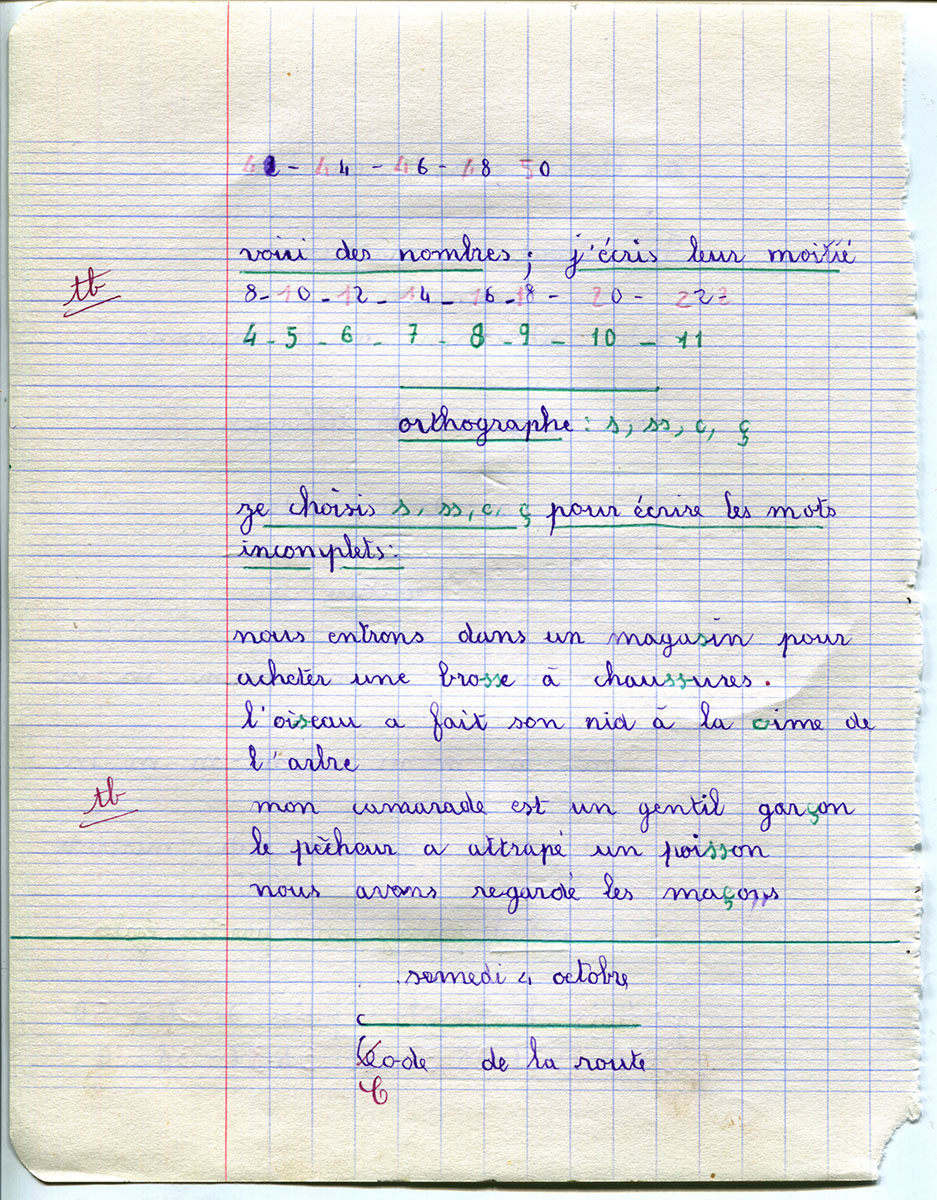 42 - 44 - 46 - 48 50
voici des nombres ; j'écris leur moitié
tb
8 - 10 - 12 - 14 - 16 - 18 - 20 - 22
4 - 5 - 6 - 7 - 8 - 9 - 10 - 11
orthographe : s, ss, c, ç
je choisis s, ss, c, ç pour écrire les mots
incomplets :
nous entrons dans un magasin pour
acheter une brosse à chaussures.
l'oiseau a fait son nid à la cime de
l'arbre
tb
mon camarade est un gentil garçon
le pêcheur a attrapé un poisson
nous avons regardé les maçons
samedi 4 octobre
c
Code de la route
C